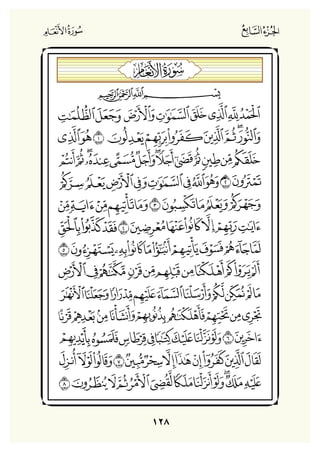 الجزء السابع سورة الأنعام
سورة الأنعام
بسم الله الرحمن الرحيم
ٱلْحَمْدُ لِلَّهِ ٱلَّذِى خَلَقَ ٱلسَّمَٰوَٰتِ وَٱلْأَرْضَ وَجَعَلَ ٱلظُّلُمَٰتِ
وَٱلنُّورَ ۖ ثُمَّ ٱلَّذِينَ كَفَرُوا۟ بِرَبِّهِمْ يَعْدِلُونَ ١ هُوَ ٱلَّذِى
خَلَقَكُم مِّن طِينٍ ثُمَّ قَضَىٰٓ أَجَلًا ۖ وَأَجَلٌ مُّسَمًّى عِندَهُۥ ۖ ثُمَّ أَنتُمْ
تَمْتَرُونَ ٢ وَهُوَ ٱللَّهُ فِى ٱلسَّمَٰوَٰتِ وَفِى ٱلْأَرْضِ ۖ يَعْلَمُ سِرَّكُمْ
وَجَهْرَكُمْ وَيَعْلَمُ مَا تَكْسِبُونَ ٣ وَمَا تَأْتِيهِم مِّنْ ءَايَةٍ مِّنْ
ءَايَٰتِ رَبِّهِمْ إِلَّا كَانُوا۟ عَنْهَا مُعْرِضِينَ ٤ فَقَدْ كَذَّبُوا۟ بِٱلْحَقِّ
لَمَّا جَآءَهُمْ ۖ فَسَوْفَ يَأْتِيهِمْ أَنۢبَٰٓؤُا۟ مَا كَانُوا۟ بِهِۦ يَسْتَهْزِءُونَ ٥
أَلَمْ يَرَوْا۟ كَمْ أَهْلَكْنَا مِن قَبْلِهِم مِّن قَرْنٍ مَّكَّنَّٰهُمْ فِى ٱلْأَرْضِ
مَا لَمْ نُمَكِّن لَّكُمْ وَأَرْسَلْنَا ٱلسَّمَآءَ عَلَيْهِم مِّدْرَارًا وَجَعَلْنَا ٱلْأَنْهَٰرَ
تَجْرِى مِن تَحْتِهِمْ فَأَهْلَكْنَٰهُم بِذُنُوبِهِمْ وَأَنشَأْنَا مِنۢ بَعْدِهِمْ قَرْنًا
ءَاخَرِينَ ٦ وَلَوْ نَزَّلْنَا عَلَيْكَ كِتَٰبًا فِى قِرْطَاسٍ فَلَمَسُوهُ بِأَيْدِيهِمْ
لَقَالَ ٱلَّذِينَ كَفَرُوٓا۟ إِنْ هَٰذَآ إِلَّا سِحْرٌ مُّبِينٌ ٧ وَقَالُوا۟ لَوْلَآ أُنزِلَ
عَلَيْهِ مَلَكٌ ۖ وَلَوْ أَنزَلْنَا مَلَكًا لَّقُضِىَ ٱلْأَمْرُ ثُمَّ لَا يُنظَرُونَ ٨
١٢٨